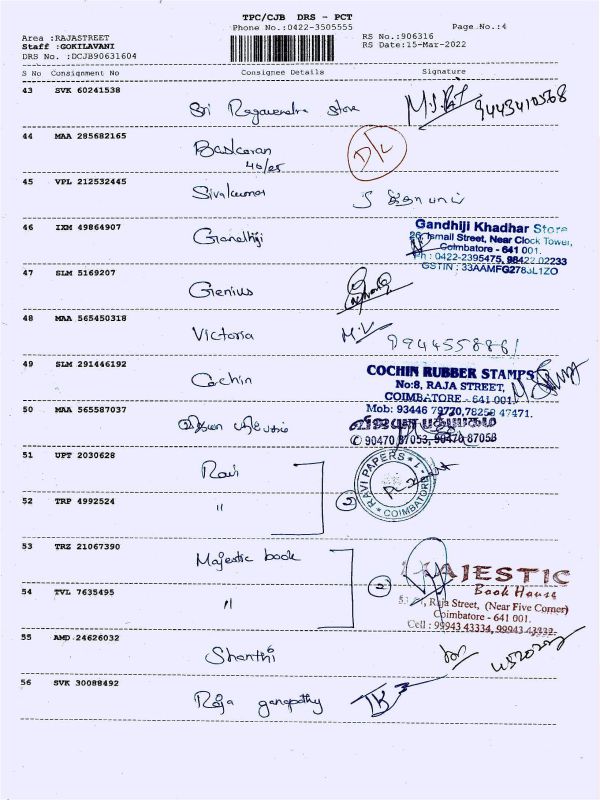 TPC/CJB DRS - PCT
Phone No.:0422-3505555
Page No.:4
Area :RAJASTREET
RS No.:906316
Staff :GOKILAVANI
RS Date:15-Mar-2022
DRS No. :DCJB90631604
S No Consignment No Consignee Details Signature
43 SVK 60241538
Sri Ragavendra store
9443410568
44 MAA 285682165
Baskaran
D/L
45 VPL 212532445
Sivakumar
46 IXM 49864907
Gandhiji
Gandhiji Khadhar Store
26, Ismail Street, Near Clock Tower,
Coimbatore - 641 001.
Ph : 0422-2395475, 98422 02233
47 SLM 5169207
Genius
48 MAA 565450318
Victoria
M.V
49 SLM 291446192
Cochin
COCHIN RUBBER STAMPS
No:8, RAJA STREET,
COIMBATORE - 641 001.
50 MAA 565587037
51 UPT 2030628
Ravi
RAVI PAPERS
COIMBATORE - 1
52 TRP 4992524
"
2
53 TRZ 21067390
Majestic book
MAJESTIC
Book House
Raja Street, (Near Five Corner)
Coimbatore - 641 001.
Cell : 99943 43334, 99943 43332.
54 TVL 7635495
"
2
55 AMD 24626032
Shanthi
56 SVK 30088492
Raja ganapathy